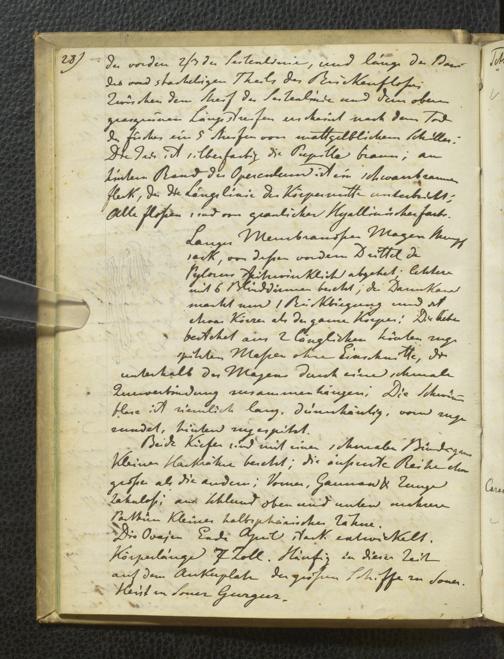 28)
der vorden 2/3 der Seitenlinie, und längs der Basis
des vord stacheligen Theils der Rückenflosse,
Zwischen dem Streif der Seitenlinie und dem obern
graugrünen Längsstreifen erscheint nach dem Tod
des Fisches ein 5 Streifen von mattgelblichem Schiller;
Die Iris ist silberfarbig die Pupille braun; am
hintern Rand des Operculum ist ein schwarzbrauner
Fleck, der die Längslinie der Körpermitte unterbricht;
Alle Flossen sind von graulicher Hyallinischer Farb.
Langer Membranöser Magen
sack, von dessen vordern Drittel der
Pylorus abgehet; letzterer
mit 6 Blinddärmen besetzt; der Darmkanal
macht nur 1 Rückbiegung und ist
etwas Kürzer als der ganze Körper; Die Leber
bestehet aus 2 länglichen hinten zuge-
spitzten Massen ohne Einschnitte, die
unterhalb des Magens durch eine schmale
Querverbindung zusammenhängen; Die Schwim
blase ist ziemlich lang, dünnhäutig, vorn zuge
rundet, hinten zugespitzt.
Beide Kiefer sind mit einer schmalen Binde ganz
Kleiner Zähne besetzt; die äusserste Reihe etwas
größer als die andern; Vomer, Gaumen & Zunge
zahnlos; am Schlund oben und unten mehrere
Parthien Kleiner halbsphärischer Zähne.
Die Ovarien Ende April stark entwickelt.
Körperlänge 7 Zoll. Häufig in dieser Zeit
auf dem Ankerplatz der großen Schiffe zu
Heist in Gurgur.